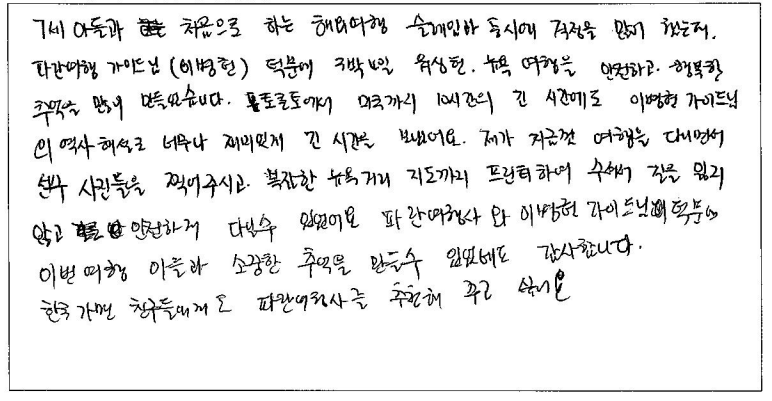 7세 아들과 처음으로 하는 해외여행 설레임과 동시에 걱정을 많이 했는데,
파란여행 가이드님 (이병헌) 덕분에 3박4일 워싱턴, 뉴욕 여행을 안전하고, 행복한
추억을 많이 만들었습니다. 토론토에서 미국까지 10시간의 긴 시간에도 이병헌 가이드님
의 역사 해설로 너무나 재미있게 긴 시간을 보냈어요. 제가 지금껏 여행을 다니면서
선수 사진들을 찍어주시고, 복잡한 뉴욕거리 지도까지 프린터하여 수셔서 길을 잃지
않고 안전하게 다닐수 있었어요 파란여행사와 이병헌 가이드님 덕분에
이번 여행 아들과 소중한 추억을 만들수 있었네요 감사합니다.
한국 가면 친구들에게도 파란여행사를 추천해 주고 싶어요